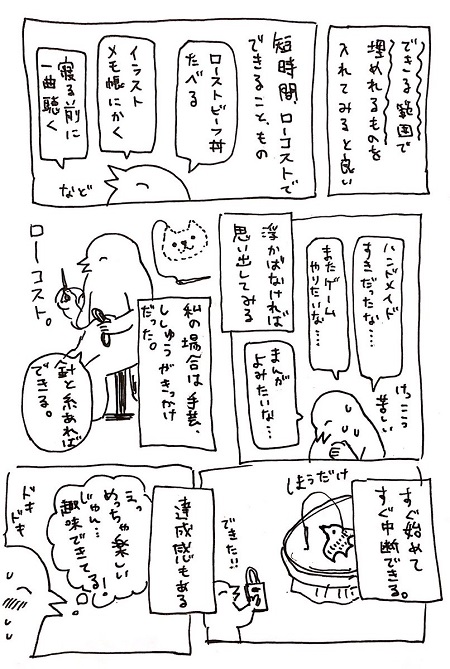 できる範囲で
埋めれるものを
入れてみると良い
短時間、ローコストで
できること、もの
ローストビーフ丼
たべる
イラスト
メモ帳にかく
寝る前に
一曲聴く
など
ハンドメイド
すきだったな……
またゲーム
やりたいな……
まんが
よみたいな…
けっこう
苦しい
浮かばなければ
思い出してみる
私の場合は手芸、
ししゅうがきっかけ
だった。
針と糸あれば
できる。
ローコスト。
すぐ始めて
すぐ中断できる。
ぬうだけ
できた!!
達成感もある
えっ
めっちゃ楽しい
じゃん…
趣味できてる!
ドキ
ドキ